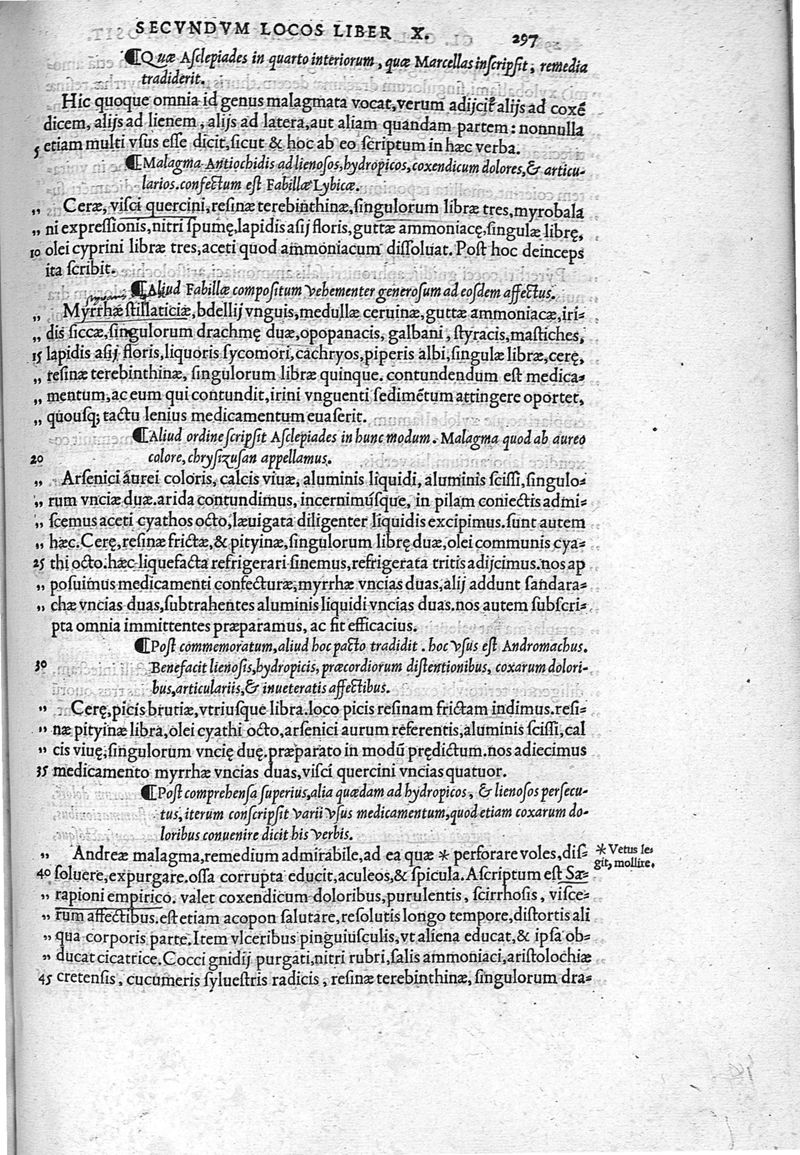 SECVNDVM LOCOS LIBER X. 297
¶Quæ Asclepiades in quarto interiorum, quæ Marcellas inscripsit, remedia
tradiderit.
Hic quoque omnia id genus malagmata vocat, verum adijcit alijs ad coxẽ
dicem, alijs ad lienem, alijs ad latera, aut aliam quandam partem: nonnulla
5 etiam multi vsus esse dicit, sicut & hoc ab eo scriptum in hæc verba.
¶Malagma Antiochidis ad lienosos, hydropicos, coxendicum dolores, & articu-
larios. confectum est Fabillæ Lybicæ.
„ Ceræ, visci quercini, resinæ terebinthinæ, singulorum libræ tres, myrobala
„ ni expressionis, nitri spumę, lapidis asij floris, guttæ ammoniacę, singulæ librę,
10 olei cyprini libræ tres, aceti quod ammoniacum dissoluat. Post hoc deinceps
ita scribit.
¶Aliud Fabillæ compositum vehementer generosum ad eosdem affectus.
„ Myrrhæ stillaticiæ, bdellij vnguis, medullæ ceruinæ, guttæ ammoniacæ, iri-
„ dis siccæ, singulorum drachmę duæ, opopanacis, galbani, styracis, mastiches,
15 lapidis asij floris, liquoris sycomori, cachryos, piperis albi, singulæ libræ, cerę,
„ resinæ terebinthinæ, singulorum libræ quinque. contundendum est medica-
„ mentum, ac eum qui contundit, irini vnguenti sedimẽtum attingere oportet,
„ quousq; tactu lenius medicamentum euaserit.
¶Aliud ordine scripsit Asclepiades in hunc modum. Malagma quod ab aureo
20 colore, chrysizusan appellamus.
„ Arsenici aurei coloris, calcis viuæ, aluminis liquidi, aluminis scissi, singulo-
„ rum vnciæ duæ. arida contundimus, incernimúsque, in pilam coniectis admi-
„ scemus aceti cyathos octo, læuigata diligenter liquidis excipimus. sunt autem
„ hæc. Cerę, resinæ frictæ, & pityinæ, singulorum librę duæ, olei communis cya-
25 thi octo. hæc liquefacta refrigerari sinemus, refrigerata tritis adijcimus. nos ap
„ posuimus medicamenti confecturæ, myrrhæ vncias duas, alij addunt sandara-
„ chæ vncias duas, subtrahentes aluminis liquidi vncias duas. nos autem subscri-
pta omnia immittentes præparamus, ac fit efficacius.
¶Post commemoratum, aliud hoc pacto tradidit. hoc vsus est Andromachus.
30 Benefacit lienosis, hydropicis, præcordiorum distentionibus, coxarum dolori-
bus, articulariis, & inueteratis affectibus.
„ Cerę, picis brutiæ, vtriusque libra. loco picis resinam frictam indimus. resi-
„ næ pityinæ libra, olei cyathi octo, arsenici aurum referentis, aluminis scissi, cal
„ cis viuę, singulorum vncię duę. præparato in modũ prędictum. nos adiecimus
35 medicamento myrrhæ vncias duas, visci quercini vncias quatuor.
¶Post comprehensa superius, alia quædam ad hydropicos, & lienosos persecu-
tus, iterum conscripsit varii vsus medicamentum, quod etiam coxarum do-
loribus conuenire dicit his verbis.
„ Andreæ malagma, remedium admirabile, ad ea quæ * perforare voles, dis-
* Vetus le-
git, mollire.
40 soluere, expurgare. ossa corrupta educit, aculeos, & spicula. Ascriptum est Sæ-
„ rapioni empirico. valet coxendicum doloribus, purulentis, scirrhosis, visce-
„ rum affectibus. est etiam acopon salutare, resolutis longo tempore, distortis ali
„ qua corporis parte. Item vlceribus pinguiusculis, vt aliena educat, & ipsa ob-
„ ducat cicatrice. Cocci gnidij purgati, nitri rubri, salis ammoniaci, aristolochiæ
45 cretensis, cucumeris syluestris radicis, resinæ terebinthinæ, singulorum dra-